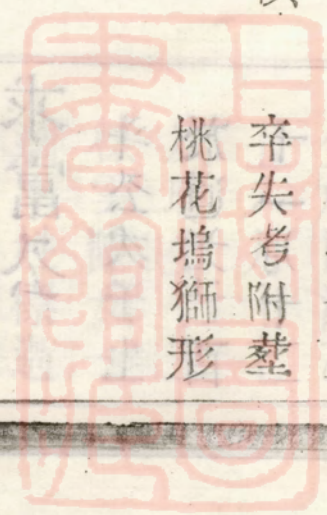 卒失考附塟
桃花塢獅形